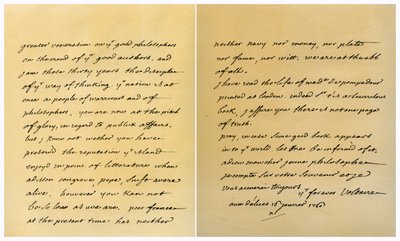 greater veneration on yr good philosophers
on the end of yr good authors, and
j am these thirty years the disciple
of yr way of thinking. yr nation is at
once a people of warriours and of
philosophers. you are now at the pitch
of glory, in regard to publik affairs.
but j know not whether you have
preserv'd the reputation yr island
enjoy'd in point of litterature when
adison congreve, pope, swift were
alive. however you kan not
be so low as we are. poor france
at the present time has neither
neither navy nor money, nor plate
nor fame, nor witt. we are at the ebb
of all.
j have read the life of mad de pompadour
printed at london. indeed sr it is a scurrilous
book, j assure you there is not one page
of truth.
pray in case some good book appears
in to yr world, let me be inform'd of it.
adieu mon cher jeune philosophe
comptez sur votre souvenir et je
vous aimerai toujours
yr for ever Voltaire
aux delices 16 janvier 1760